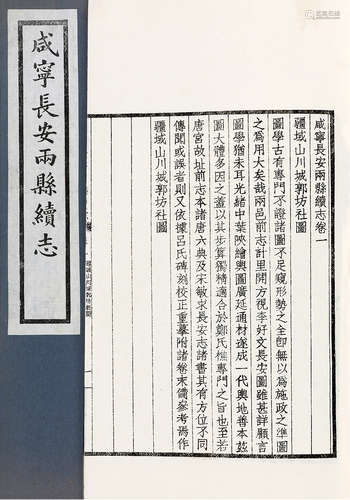 咸寧長安兩縣續志
咸寧長安兩縣續志卷一
疆域山川城郭坊社圖
圖學古有專門不證諸圖不足窺形勢之全即無以為施政之準圖
之為用大矣哉兩邑前志計里開方視李好文長安圖雖甚詳顧言
圖學猶未耳光緒中葉陝繪輿圖廣延通材遂成一代輿地善本茲
圖大體多因之蓋以其步算獨精適合於鄭氏樵專門之旨也至若
唐宮故址前志本諸唐六典及宋敏求長安志諸書其有方位不同
傳聞或誤者則又依據呂氏碑刻校正重摹附諸卷末備參考焉作
疆域山川城郭坊社圖